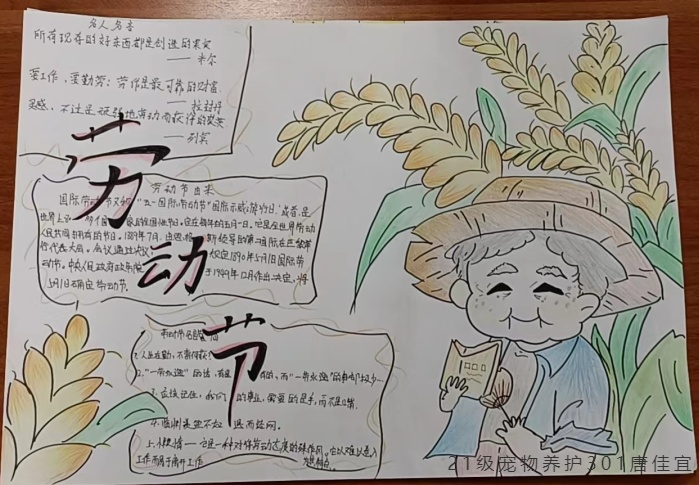 名人名言
所有现存的好东西都是创造的果实
——米尔
爱工作,爱勤劳:劳作是最可靠的财富
——拉封丹
灵感,不过是顽强地劳动而获得的奖赏
——列宾
劳动节
劳动节由来
国际劳动节又称"五一国际劳动节""国际示威游行日",
世界上 国家 定在每年的五月一日。它是全世界劳动
人民共同拥有的节日。1889年7月,由恩格斯领导的第二国际在巴黎举
行代表大会。会议通过决议, 规定1890年5月1日国际劳
动节。中央人民政府政务院 于1949年12月作出决定,将
5月1日确定劳动节。
劳动节名言
1.人生在勤,不索何获
2."一劳永逸"的话,有是 有的,而"一劳永逸"的事却极少…
3.应该记住,我们 的事业,需要的是手,而不是嘴
工作而局于离开工作
21级宠物养护301唐佳宜